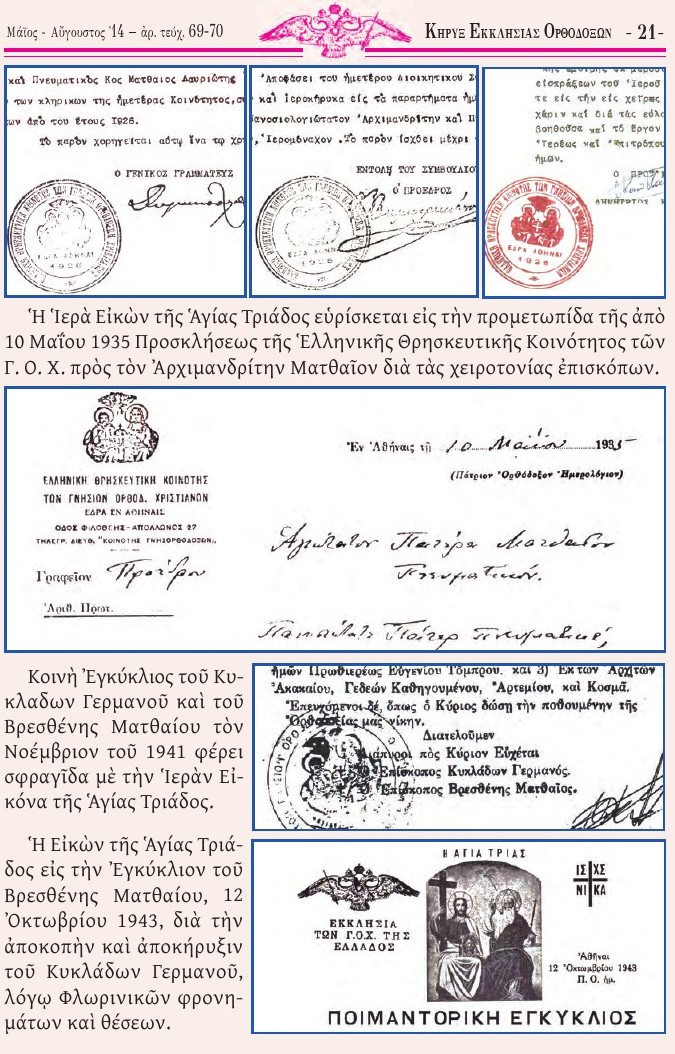 Μάϊος - Αὔγουστος '14 – ἀρ. τεύχ. 69-70
Κηρυξ Εκκλησιας Ορθοδοξων - 21-
καί Πνευματικός Κος Ματθαῖος Λαυριώτης
των κληρικων της ἡμετέρας Κοινότητος,
ων ἀπό του ἔτους 1926.
Το παρόν χορηγεῖται αὐτῳ ἵνα τῳ
Ο ΓΕΝΙΚΟΣ ΓΡΑΜΜΑΤΕΥΣ
ΕΔΡΑ ΑΘΗΝΑΙ
1926
Ἀποφάσει του ἡμετέρου Διοικητικου
καί Ἱεροκήρυκα εἰς τά παραρτήματα
πανοσιολογιώτατον Ἀρχιμανδρίτην καί
,Ἱερομόναχον .Τό παρόν ἰσχύει μέχρι
ΕΝΤΟΛΗ ΤΟΥ ΣΥΜΒΟΥΛΙΟΥ
Ο ΠΡΟΕΔΡΟΣ
ΕΔΡΑ ΑΘΗΝΑΙ
1926
εἰσπράξεων του
τε εἰς τήν εἰς χεῖρας
χάριν καί διά τάς
βοηθοῦσα καί τό ἔργον
Ἱερέως καί
ἡμων.
ΕΛΛΗΝΙΚΗ ΘΡΗΣΚΕΥΤΙΚΗ ΚΟΙΝΟΤΗΣ ΤΩΝ ΓΝΗΣΙΩΝ ΟΡΘΟΔΟΞΩΝ ΧΡΙΣΤΙΑΝΩΝ
ΕΔΡΑ ΑΘΗΝΑΙ
1926
Ἡ Ἱερὰ Εἰκὼν τῆς Ἁγίας Τριάδος εὑρίσκεται εἰς τὴν προμετωπίδα τῆς ἀπὸ
10 Μαΐου 1935 Προσκλήσεως τῆς Ἑλληνικῆς Θρησκευτικῆς Κοινότητος τῶν
Γ. Ο. Χ. πρὸς τὸν Ἀρχιμανδρίτην Ματθαῖον διὰ τὰς χειροτονίας ἐπισκόπων.
ΕΛΛΗΝΙΚΗ ΘΡΗΣΚΕΥΤΙΚΗ ΚΟΙΝΟΤΗΣ
ΤΩΝ ΓΝΗΣΙΩΝ ΟΡΘΟΔ. ΧΡΙΣΤΙΑΝΩΝ
ΕΔΡΑ ΕΝ ΑΘΗΝΑΙΣ
ΟΔΟΣ ΦΙΛΟΘΕΗΣ-ΑΠΟΛΛΩΝΟΣ 27
ΤΗΛΕΓΡ. ΔΙΕΥΘ. "ΚΟΙΝΟΤΗΣ ΓΝΗΣΙΟΡΘΟΔΟΞΩΝ„
Γραφεῖον Προέδρου
Ἀριθ. Πρωτ.
Ἐν Ἀθήναις τῇ 10 Μαΐου 1935
(Πάτριον Ὀρθόδοξον Ἡμερολόγιον)
Ἁγιώτατον Πατέρα Ματθαῖον
Πνευματικόν.
Πανοσιώτατε Πάτερ Πνευματικέ,
Κοινὴ Ἐγκύκλιος τοῦ Κυ-
κλαδων Γερμανοῦ καὶ τοῦ
Βρεσθένης Ματθαίου τὸν
Νοέμβριον τοῦ 1941 φέρει
σφραγῖδα μὲ τὴν Ἱερὰν Εἰ-
κόνα τῆς Ἁγίας Τριάδος.
ἡμῶν Πρωθιερέως Εὐγενίου Τόμπρου. καὶ 3) Ἐκ τῶν Ἀρχιτῶν
Ἀκακαίου, Γεδεών Καθηγουμένου, Ἀρτεμίου, καὶ Κοσμᾶ.
Ἐπευχόμενοι δέ, ὅπως ὁ Κύριος δώσῃ τὴν ποθουμένην τῆς
Ὀρθοδοξίας μας νίκην.
Διατελοῦμεν
Διάπυροι πὸς Κύριον Εὐχέται
Ὁ Ἐπίσκοπος Κυκλάδων Γερμανός.
Ὁ Ἐπίσκοπος Βρεσθένης Ματθαῖος.
Ἡ Εἰκὼν τῆς Ἁγίας Τριά-
δος εἰς τὴν Ἐγκύκλιον τοῦ
Βρεσθένης Ματθαίου, 12
Ὀκτωβρίου 1943, διὰ τὴν
ἀποκοπὴν καὶ ἀποκήρυξιν
τοῦ Κυκλάδων Γερμανοῦ,
λόγῳ Φλωρινικῶν φρονη-
μάτων καὶ θέσεων.
Η ΑΓΙΑ ΤΡΙΑΣ
ΕΚΚΛΗΣΙΑ
ΤΩΝ Γ.Ο.Χ. ΤΗΣ
ΕΛΛΑΔΟΣ
ΙΣ ΧΣ
ΝΙ ΚΑ
Ἀθῆναι
12 Ὀκτωμβρίου 1943
Π. Ο. ἡμ.
ΠΟΙΜΑΝΤΟΡΙΚΗ ΕΓΚΥΚΛΙΟΣ